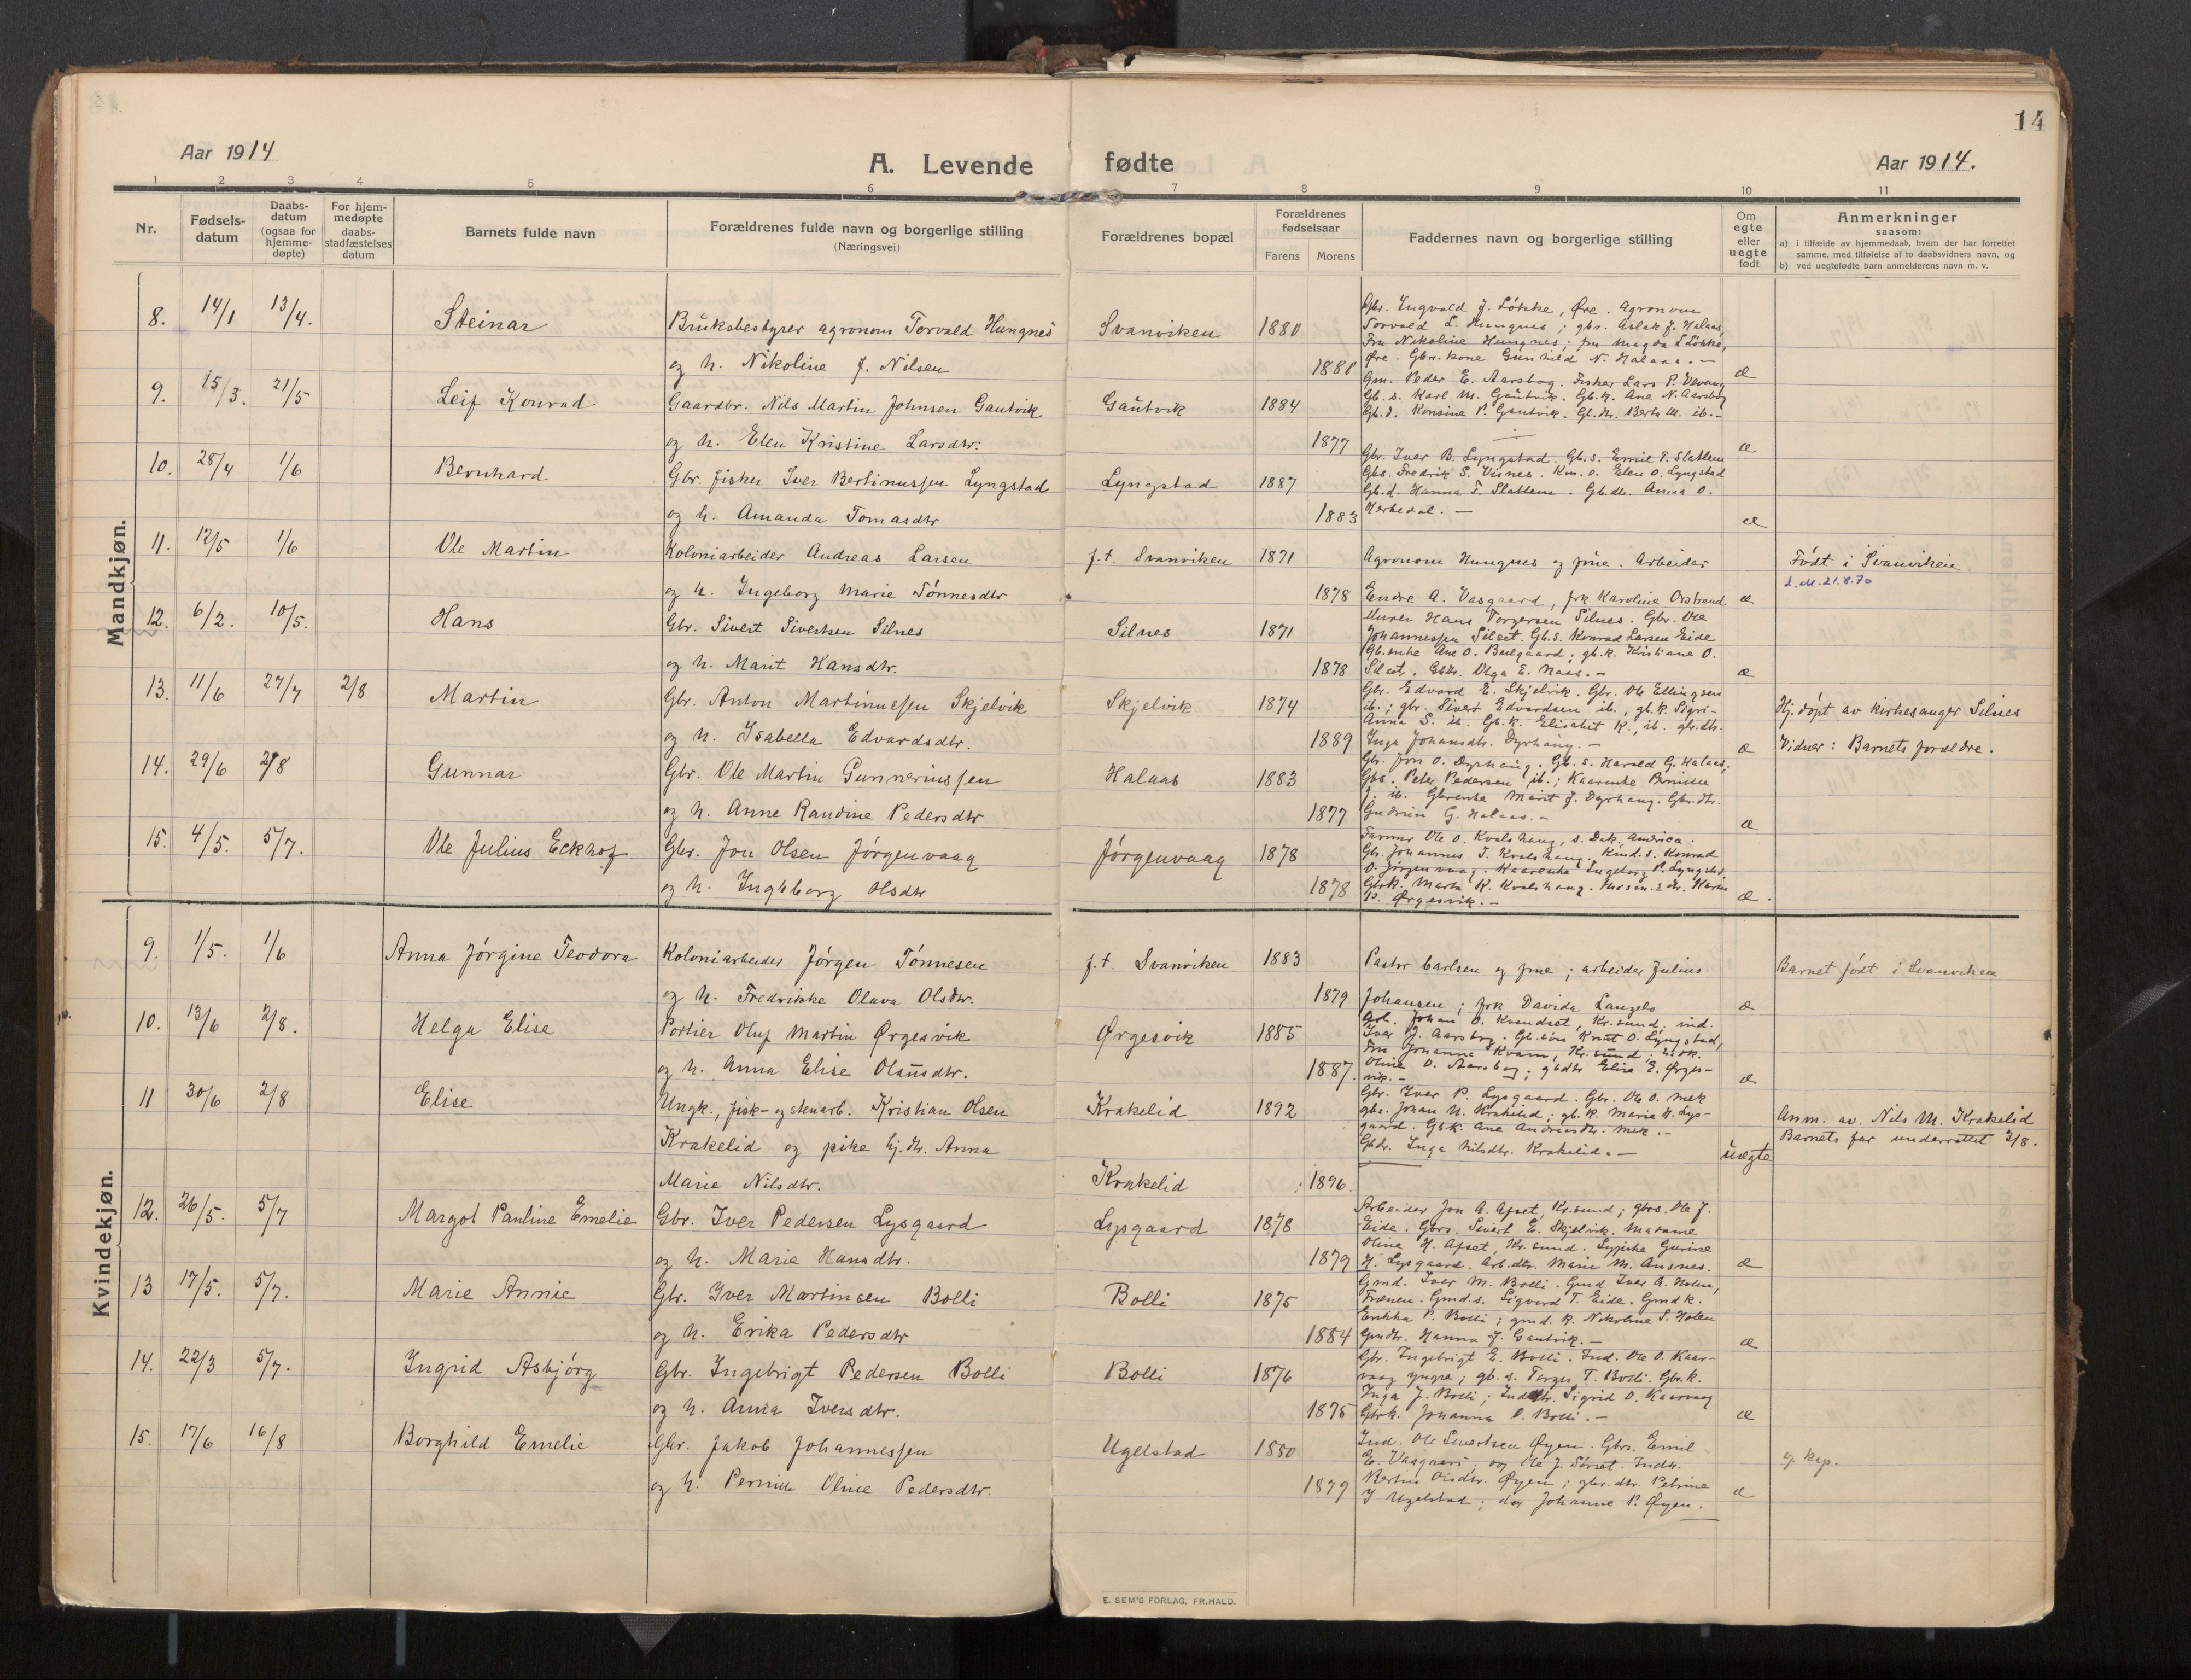 14
Aar 1914
A. Levende fødte
Aar 1914.
1 2 3 4 5 6 7 8 9 10 11
Nr.
Fødsels-
datum
Daabs-
datum
(ogsaa for
hjemme-
døpte)
For hjem-
medøpte
daabs-
stadfæstelses
datum
Barnets fulde navn
Forældrenes fulde navn og borgerlige stilling
(Næringsvei)
Forældrenes bopæl
Forældrenes
fødselsaar
Farens Morens
Faddernes navn og borgerlige stilling
Om
egte
eller
uegte
født
Anmerkninger
saasom:
a) i tilfælde av hjemmedaab, hvem der har forrettet
samme, med tilføielse av to daabsvidners navn, og
b) ved uegtefødte barn anmelderens navn m. v.
Mandkjøn.
8. 14/1 13/4. Steinar Bruksbestyrer agronom Torvald Hungnes Svanviken 1880
og h. Nikoline J. Nilsen 1881 æ
Gbr. Ingvald J. Løkke, Øre. Agronom
Torvald L. Hungnes; gbr. Aslak J. Halaas,
Fru Nikoline Hungnes; fru Magda Løkke,
Øre. Gbr. kone Gunhild N. Halaas. —
9. 15/3. 21/5 Leif Konrad Gaardbr. Nils Martin Johnsen Gautvik Gautvik 1884
og h. Elen Kristine Larsdtr. 1877 æ
Gm. Peder E. Aarsbog. Fisker Lars P. Vevang
Gb.s. Karl M. Gautvik. Gb.k. Ane N. Aarsbog
Gb.d. Konsine P. Gautvik. Gb.dtr. Berte M. ib. —
10. 28/4 1/6 Bernhard Gbr. fisker Iver Bertinussen Lyngstad Lyngstad 1887
og h. Amanda Tomasdtr 1883 æ
Gbr. Iver B. Lyngstad. Gb.s. Emil T. Slatlem
Gbs. Fredrik S. Visnes. Km. o. Elen O. Lyngstad
Gb.d. Hanna T. Slatlem. Gb.dtr. Anna O.
11. 12/5 1/6 Ole Martin Koloniarbeider Andreas Larsen f.t. Svanviken 1871
og h. Ingeborg Marie Tønnesdtr 1878 æ
Agronom Hungnes og frue. Arbeider
Endre A. Vasgaard, frk Karoline Orstrand
Født i Svanviken
d. M. 21.8.70
12. 6/2. 10/5. Hans Gbr. Sivert Sivertsen Silnes Silnes 1871
og h. Marit Hansdtr. 1878 æ
Murer Hans Torgersen Silnes. Gbr. Ole
Johannessen Silset. Gb.s. Konrad Larsen Eide
Gb.enke Ane O. Bulgaard; gb.k. Kristiane O.
Silset. Gbdr. Olga E. Naas. —
13. 11/6 27/7 2/8 Martin Gbr. Anton Martinussen Skjelvik Skjelvik 1874
og h. Isabella Edvardsdtr. 1889 æ
Gbr. Edvard E. Skjelvik. Gbr. Ole Ellingsen
ib.; gbr. Sivert Edvardsen ib., gb.k. Sigri-
Anna S. ib. Gb.k. Elisabet K., ib. gbr.dtr.
Inga Johansdtr. Dyrhaug. —
Hj. døpt av kirkesanger Silnes
Vidner: Barnets forældre.
14. 29/6 2/8 Gunnar Gbr. Ole Martin Gunneriussen Halaas 1883
og h. Anne Randine Pedersdtr 1877 æ
Gbr. Jon O. Dyrhaug. Gb.s. Harald G. Halaas,
Gbs. Peter Pedersen ib.; Kaarenke Pernille
J. ib. Gbrenke Marit J. Dyrhaug. Gbr.dtr.
Gudrun G. Halaas. —
15. 4/5. 5/7. Ole Julius Eckhof Gbr. Jon Olsen Jørgenvaag Jørgenvaag 1878
og h. Ingeborg Olsdtr 1878 æ.
Farmer Ole O. Kvalshaug, S. Dak, America.
Gbr. Johannes T. Kvalshaug. Kind.s. Konrad
O. Jørgenvaag. Kaarenke Ingeborg P. Lyngstad,
Gbrk. Marta K. Kvalshaug. Karen
P. Ørgesvik. —
Kvindekjøn.
9. 1/5. 1/6 Anna Jørgine Teodora Koloniarbeider Jørgen Tønnesen f.t. Svanviken 1883
og h. Fredrikke Olava Olsdtr. 1879 æ
Pastor Carlsen og frue; arbeider Julius
Johansen; frk Davida Langelo
Barnet født i Svanviken
10. 13/6 2/8. Helga Elise Portier Oluf Martin Ørgesvik Ørgesvik 1885
og h. Anna Elise Olausdtr. 1887. æ
Arb. Johan O. Kvendset, Kr.sund, ind.
Iver J. Aarsbog. Gb.søn Knut O. Lyngstad,
Fru Johanna Kvam, Kr.sund;
Oline O. Aarsbog; gbdtr Elisa E. Ørges-
vik. —
11 30/6 2/8 Elise Ungk., fisk- og stenarb. Kristian Olsen Krakelid 1892
Krakelid og pike hj. dtr. Anna
Marie Nilsdtr. Krakelid 1896. uegte
Gbr. Iver P. Lysgaard. Gbr. Ole O. Mek
gbs. Johan N. Krakelid; gb.k. Maria H. Lys-
gaard. Gb.k. Ane Andreasdtr. Mek. —
Gbdr. Inga Nilsdtr. Krakelid. —
Anm. av. Nils M. Krakelid
Barnets far underrettet 2/8.
12. 26/5. 5/7 Margot Pauline Emelie Gbr. Iver Pedersen Lysgaard Lysgaard 1878
og h. Marie Hansdtr. 1879 æ
Arbeider Jon A. Apset, Kr.sund; gbrs. Ole J.
Eide. Gbrs. Sivert E. Skjelvik. Madame
Oline H. Apset, Kr.sund. Sypike Gurine
H. Lysgaard. Arb.dtr. Marie M. Ausnes.
13 17/5. 5/7. Marie Annie Gbr. Iver Martinsen Bolli Bolli 1875
og h. Erika Pedersdtr 1884 æ
Gmd. Iver M. Bolli. Gmd Iver A. Holen,
Frænen. Gmd.s. Sigvard T. Eide. Gmd k.
Erikka P. Bolli; gmd. k. Nikoline S. Holen
Gmdtr. Hanna J. Gautvik. —
14. 22/3 5/7. Ingrid Asbjørg Gbr. Ingebrigt Pedersen Bolli Bolli 1876
og h. Anna Iversdtr. 1875 æ
Gbr. Ingebrigt E. Bolli. Ind. Ole O. Kaar-
vaag yngre; gb. s. Torger T. Bolli. Gbr.k.
Inga J. Bolli; Inddtr. Sigrid O. Kaarvaag
Gbrk. Johanna P. Bolli. —
15. 17/6 16/8 Borghild Emelie Gbr. Jakob Johannessen Ugelstad 1880
og h. Pernille Oline Pedersdtr. 1879 æ
Ind. Ole Sivertsen Øyen. Gbrs. Emil
E. Vasgaard; og Ole J. Sørset.
Olsdtr. Øyen; gbr. dtr. Petrine
J Ugelstad; do Johanne P. Øyen.
E. SEM'S FORLAG, FR.HALD.